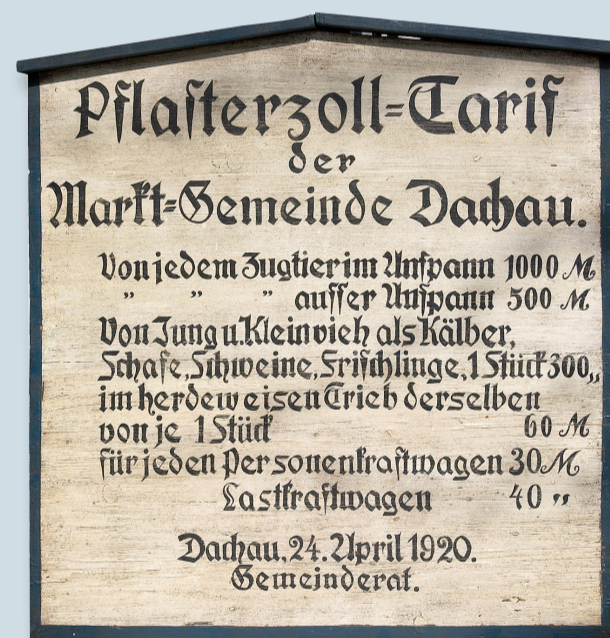 Pflasterzoll=Tarif
der
Markt=Gemeinde Dachau.
Von jedem Zugtier im Anspann 1000 M
" " " ausser Anspann 500 M
Von Jung u. Kleinvieh als Kälber,
Schafe, Schweine, Frischlinge, 1 Stück 300 „
im herdeweisen Trieb derselben
von je 1 Stück 60 M
für jeden Personenkraftwagen 30 M
Lastkraftwagen 40 "
Dachau, 24. April 1920.
Gemeinderat.